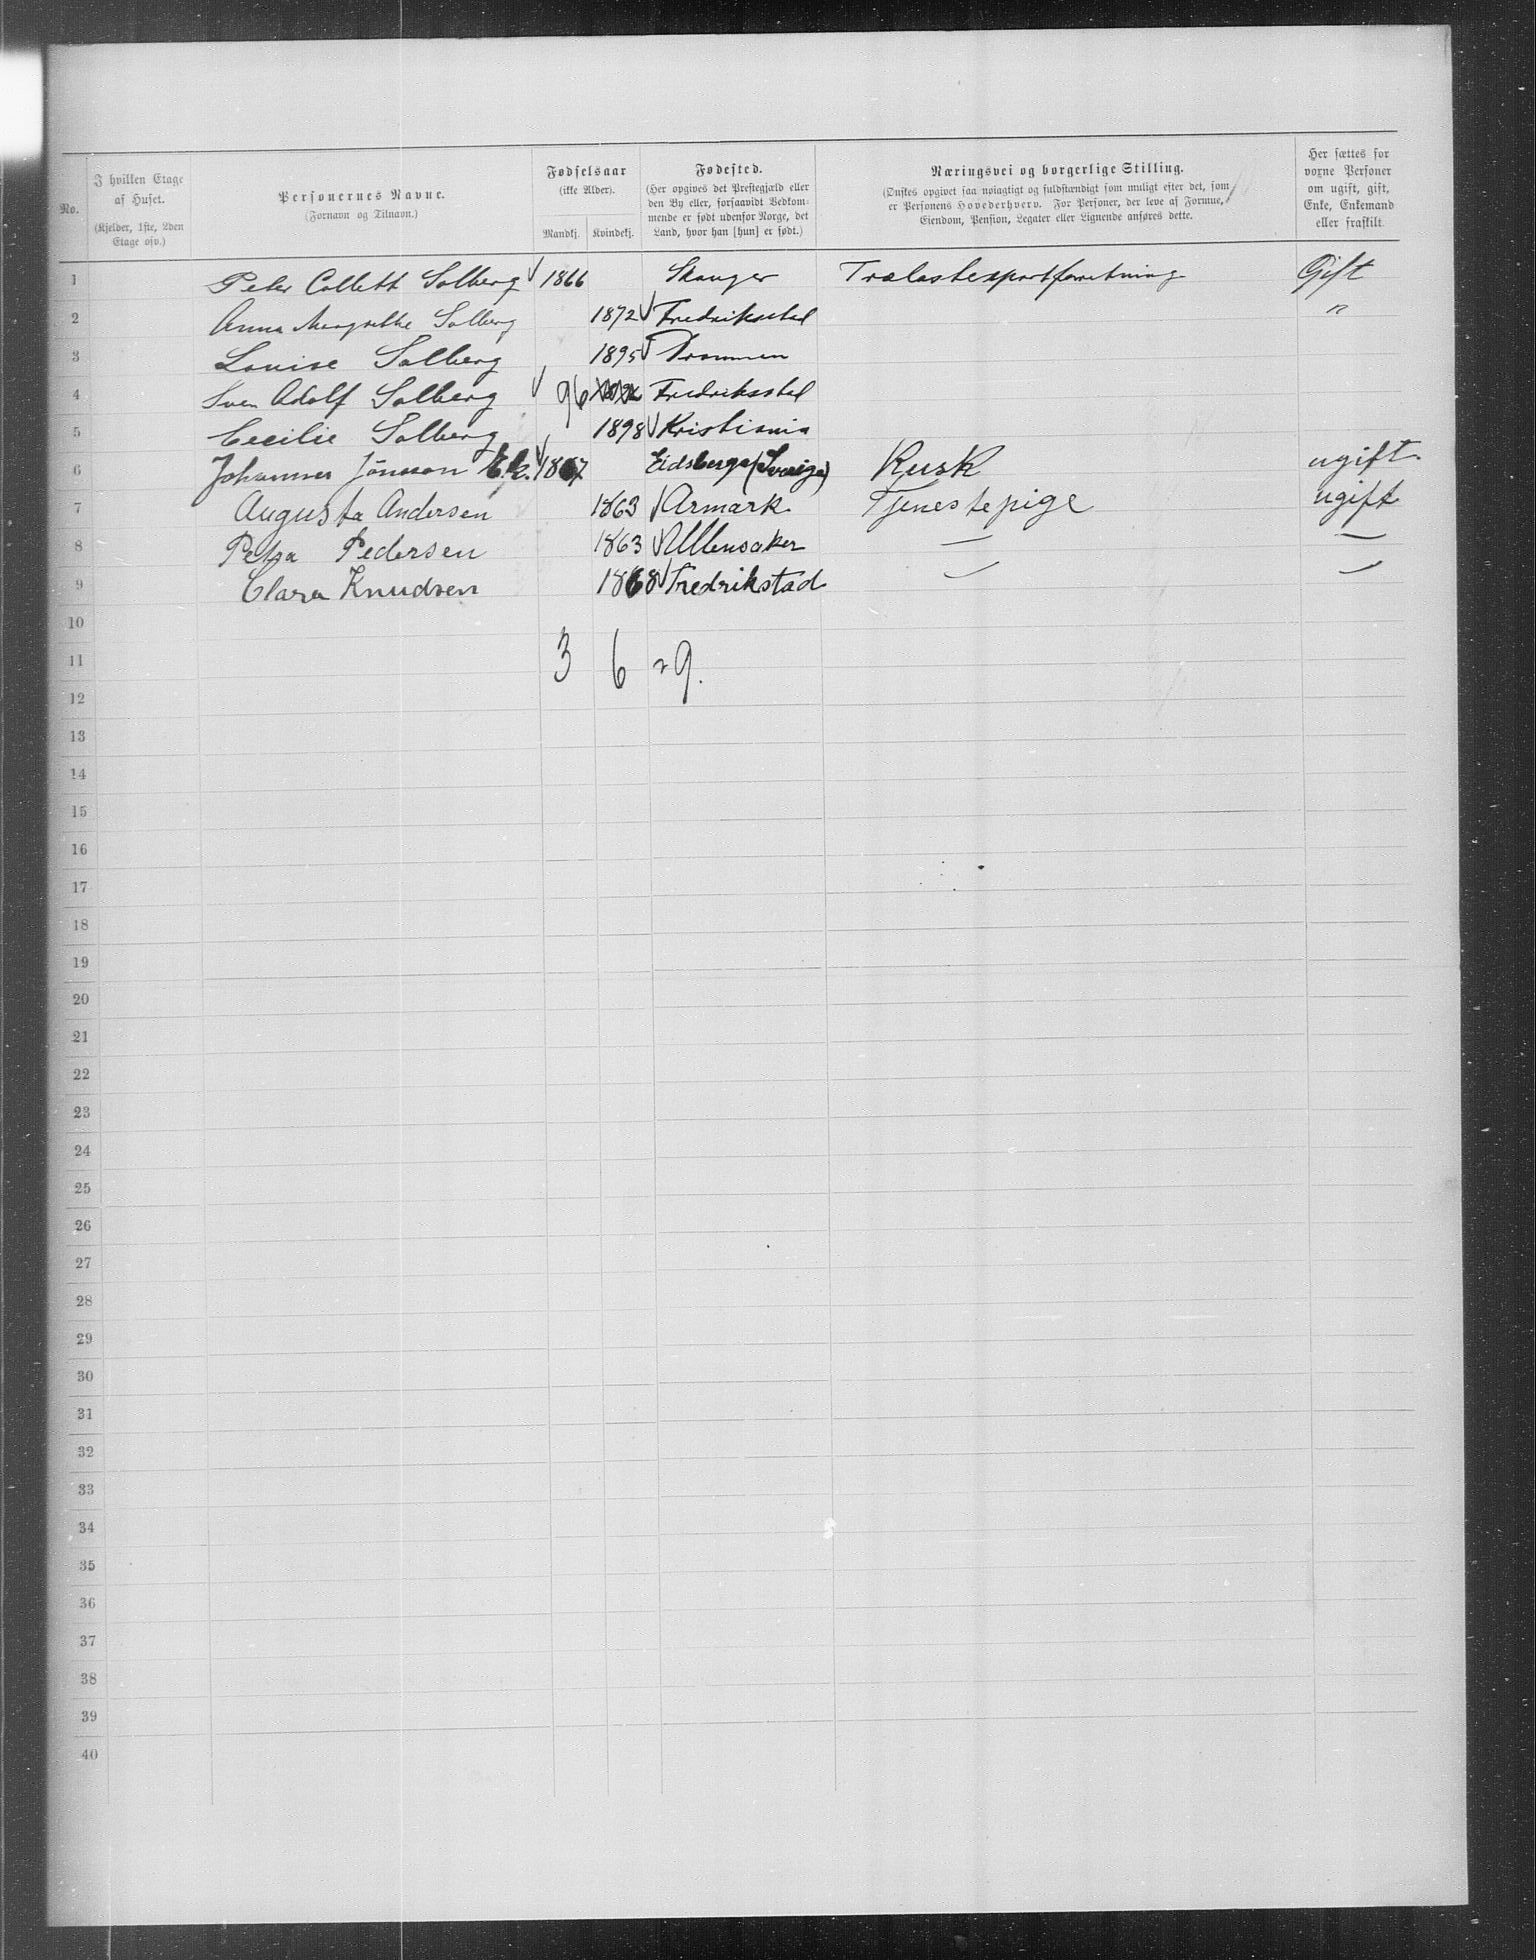 No.
I hvilken Etage af Huset.
(Kjelder, 1ste, 2den Etage osv.)
Personernes Navne.
(Fornavn og Tilnavn.)
Fødselsaar
(ikke Alder).
Mandkj. Kvindekj.
Fødested.
(Her opgives det Prestegjæld eller den By eller, forsaavidt Vedkommende er født udenfor Norge, det Land, hvor han [hun] er født.)
Næringsvei og borgerlige Stilling.
(Ønskes opgivet saa nøiagtigt og fuldstændigt som muligt efter det, som er Personens Hovederhverv. For Personer, der leve af Formue, Eiendom, Pension, Legater eller Lignende anføres dette.
Her sættes for voxne Personer om ugift, gift, Enke, Enkemand eller fraskilt.
1 Peter Collett Solberg √ 1866 Skauger Trælastexportforretning Gift
2 Anna Margrethe Solberg 1872 √ Fredriksstad "
3 Louise Solberg 1895 √ Drammen
4 Sven Adolf Solberg √ 96 Fredriksstad
5 Cecilie Solberg 1898 √ Kristiania
6 Johannes Jönsson Ek. √ 1867 Eidsberga (Sverige) Kusk ugift.
7 Augusta Andersen 1863 √ Armark Tjenestepige ugift
8 Petra Pedersen 1863 √ Ullensaker — —
9 Clara Knudsen 1868 √ Fredrikstad — —
10
11 3 6 = 9.
12
13
14
15
16
17
18
19
20
21
22
23
24
25
26
27
28
29
30
31
32
33
34
35
36
37
38
39
40